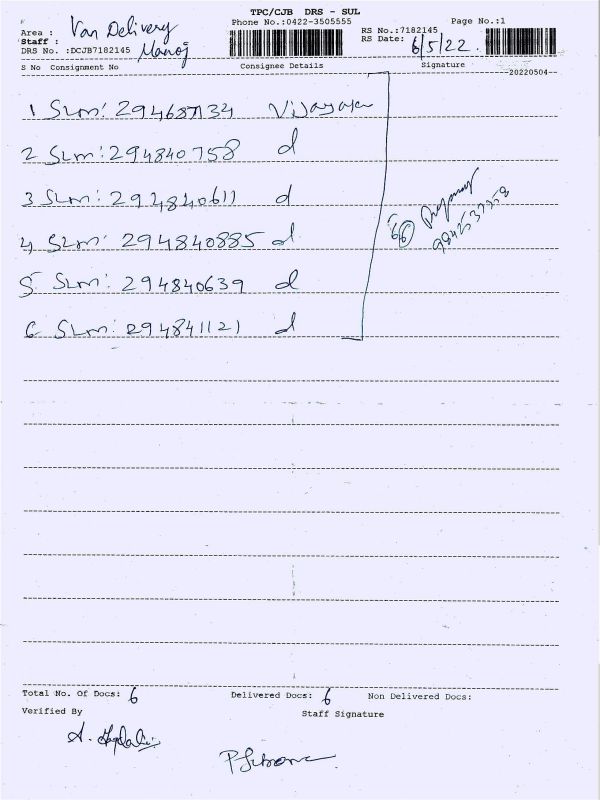 TPC/CJB DRS - SUL
Area : Van Delivery
Phone No.:0422-3505555
RS No.:7182145
Page No.:1
Staff : Manoj
RS Date: 6/5/22.
DRS No. :DCJB7182145
S No Consignment No Consignee Details Signature
20220504
1 SLM: 294687134
2 SLM: 294840758 d
3 SLM: 294840611 d
4 SLM: 294840885 d
5 SLM: 294840639 d
6 SLM: 294841121 d
Total No. Of Docs: 6 Delivered Docs: 6 Non Delivered Docs:
Verified By Staff Signature